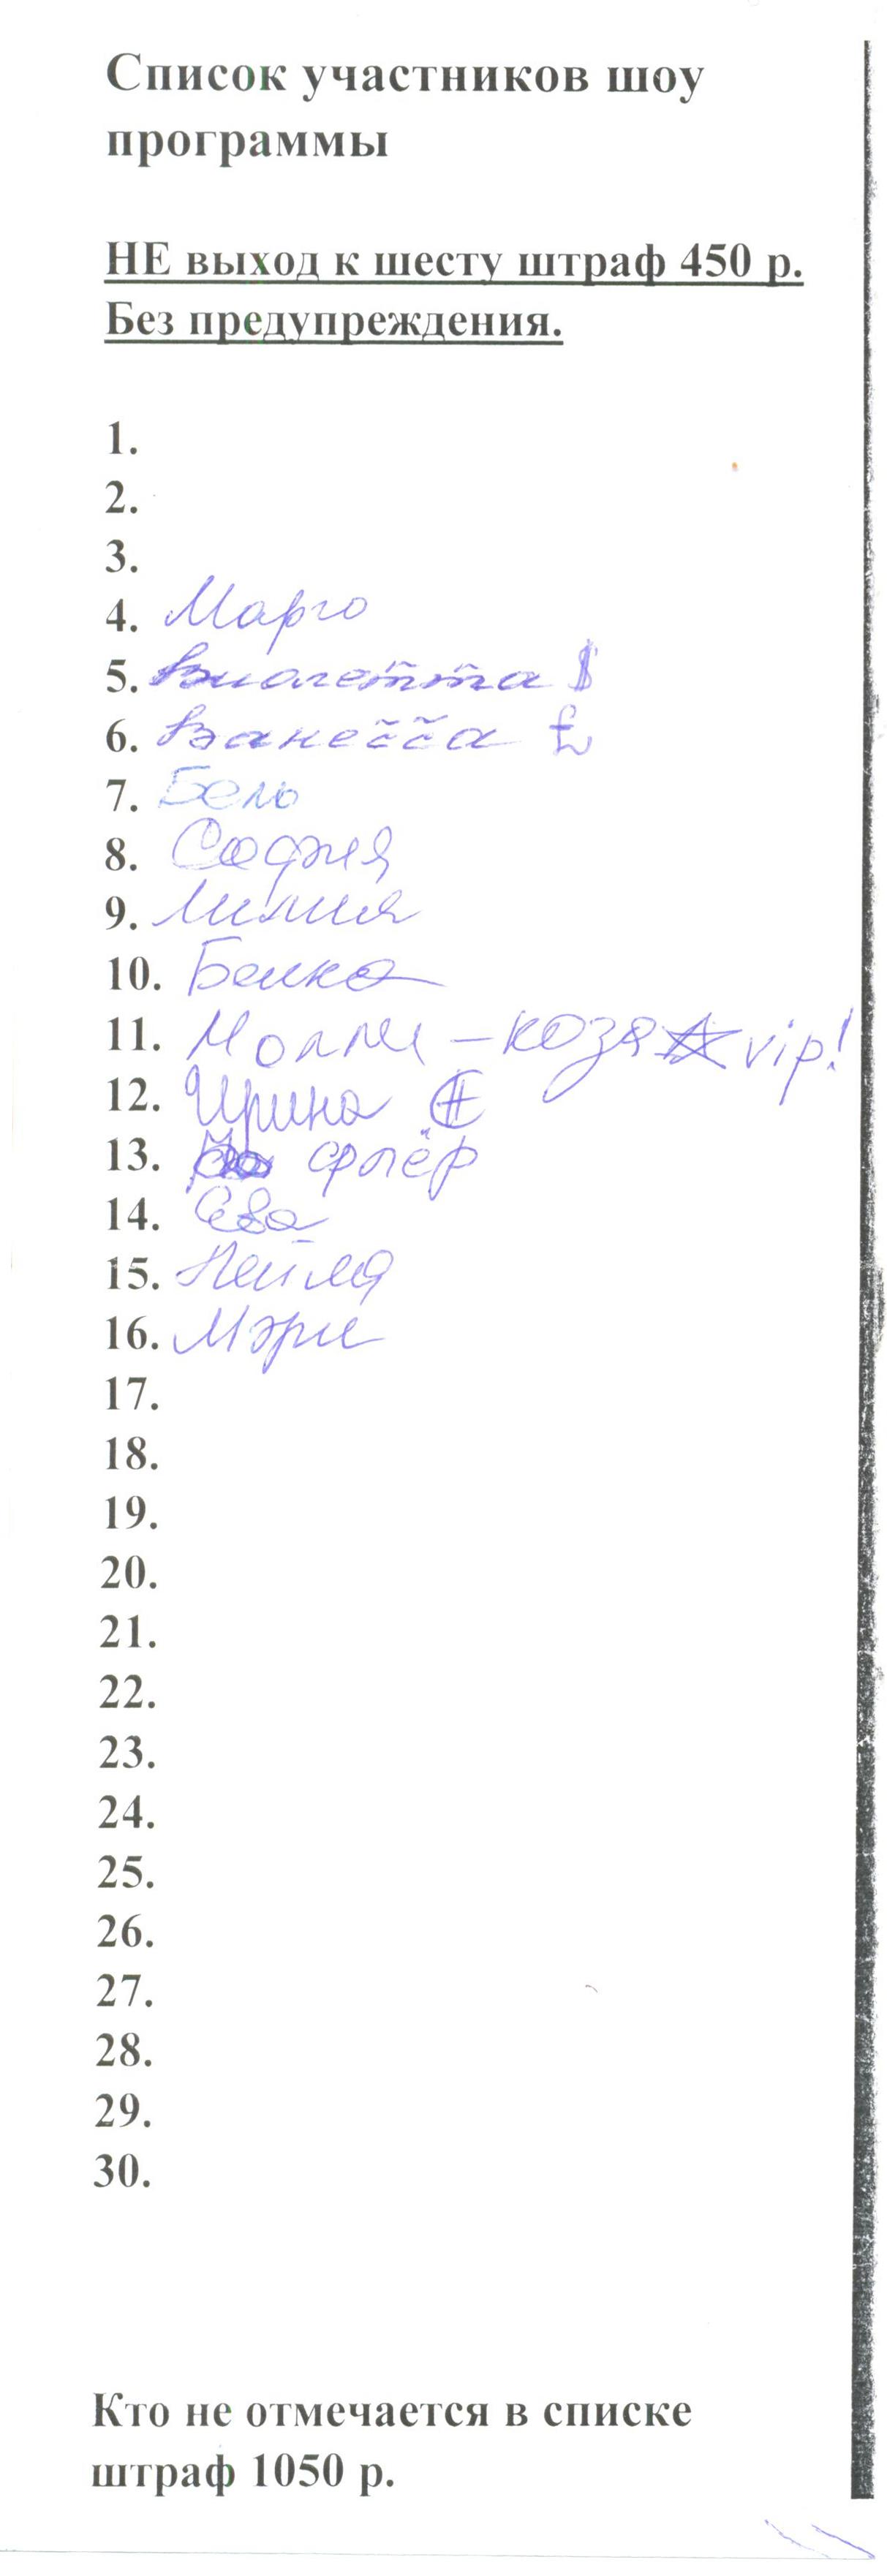 Список участников шоу
программы
НЕ выход к шесту штраф 450 р.
Без предупреждения.
1.
2.
3.
4. Марго
5. Виолетта $
6. Ванесса £
7. Бель
8. София
9. Лилия
10. Белка
11. Молли – коза vip!
12. Ирина
13. фпёр
14. Ева
15. Лейла
16. Мэри
17.
18.
19.
20.
21.
22.
23.
24.
25.
26.
27.
28.
29.
30.
Кто не отмечается в списке
штраф 1050 р.